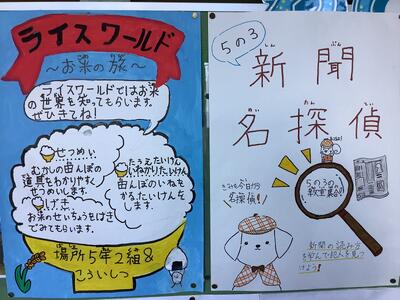 ライスワールド
～お米の旅～
ライスワールドではお米
の世界を知ってもらいます。
ぜひきてね！
せつめい
むかしの田んぼの
道具をわかりやすく
せつめいします。
げき
お米のせいちょうをげき
でみてもらいます。
たうえたいけん
いねかりたいけん
田んぼのいねを
かるたいけんを
します。
場所5年2組&
ころいしつ
5の3
新聞
しんぶん
名探偵
めいたんてい
5の3の
教室集合!!
きみも今日から
名探偵!
新聞の読み方
を学んで犯人を見つ
けよう!